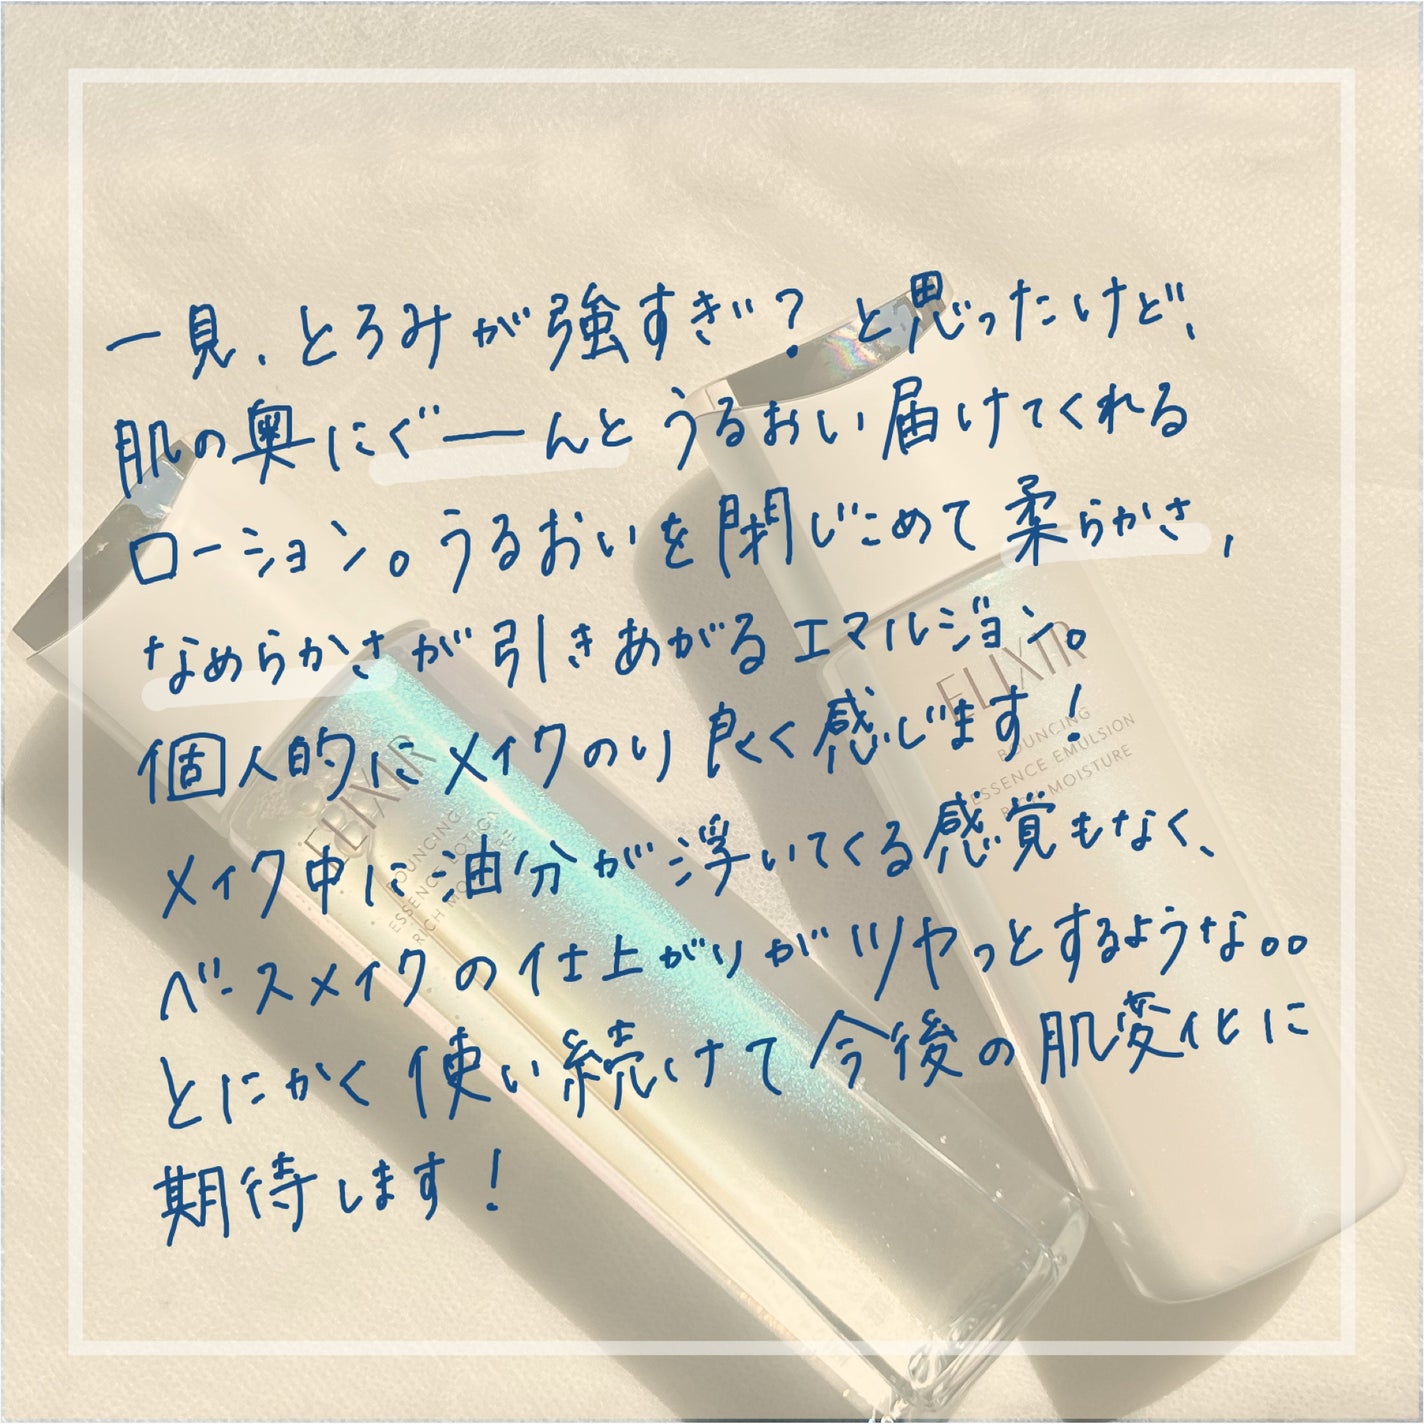 一見、とろみが強すぎ？と思ったけど、
肌の奥にぐーーんとうるおい届けてくれる
ローション。うるおいを閉じこめて柔らかさ,
なめらかさが引きあがるエマルジョン。
個人的にメイクのり良く感じます！
メイク中に油分が浮いてくる感覚もなく、
ベースメイクの仕上がりがツヤっとするような。。
とにかく使い続けて今後の肌変化に
期待します！
ELIXIR
BOUNCING
ESSENCE EMULSION
RICH MOISTURE
ELIXIR
BOUNCING
RICH